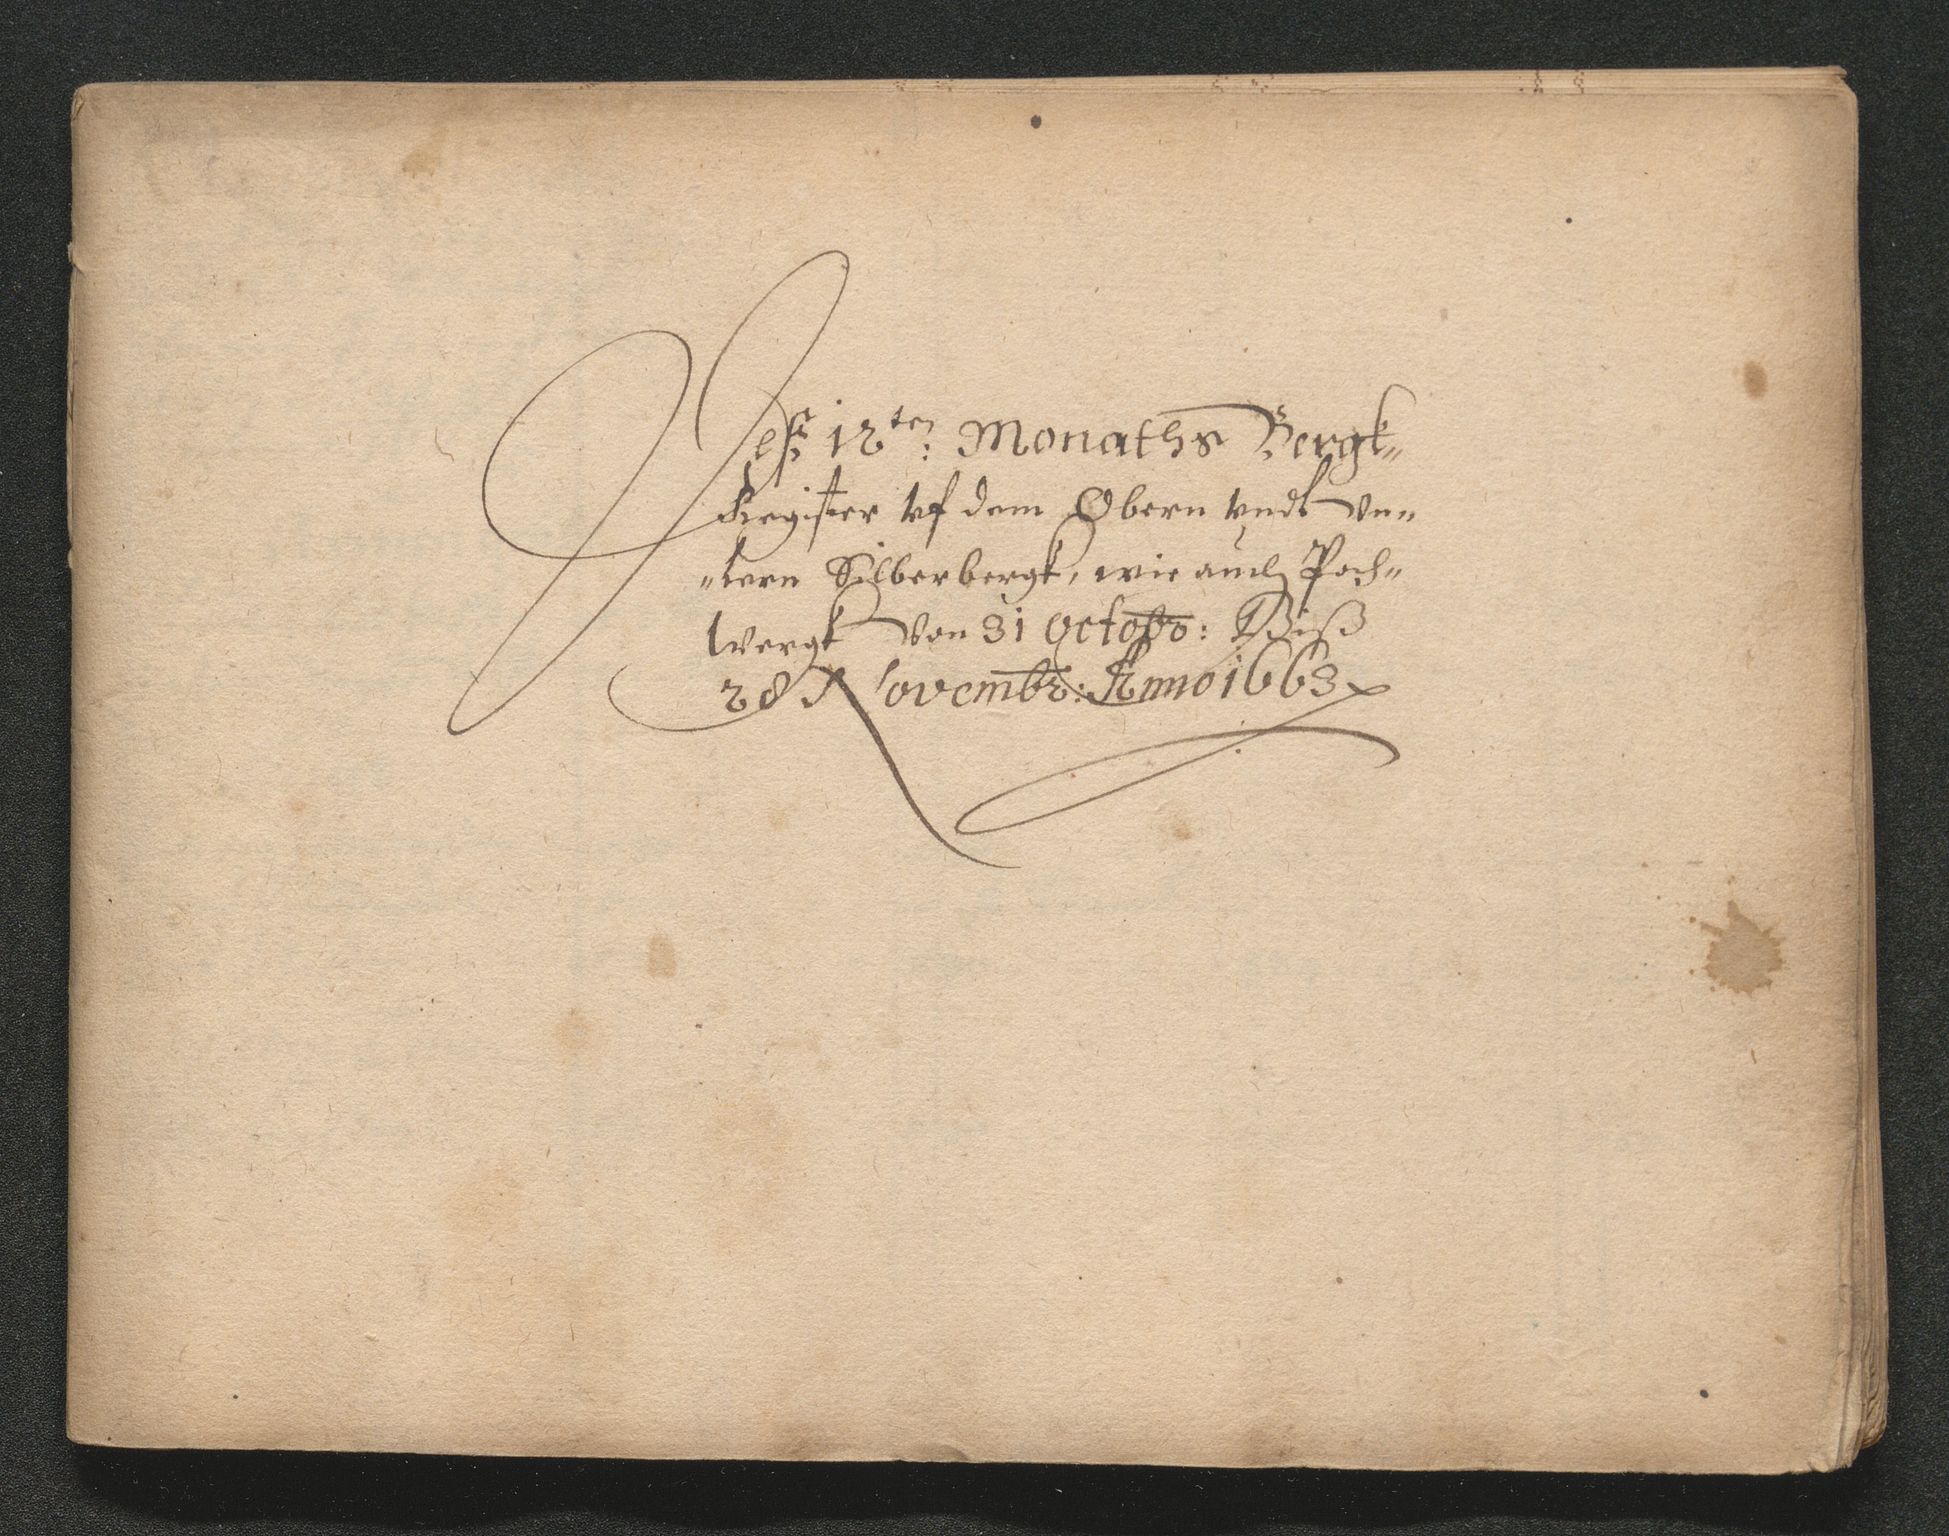 Deß 12ten: Monaths Bergk„
Register vf dem Obern vndt Vn„
„tern Silberbergk, wie auch Poch„
wergk Von 31 Octobr: Biß
28 Novembr: Anno 1663